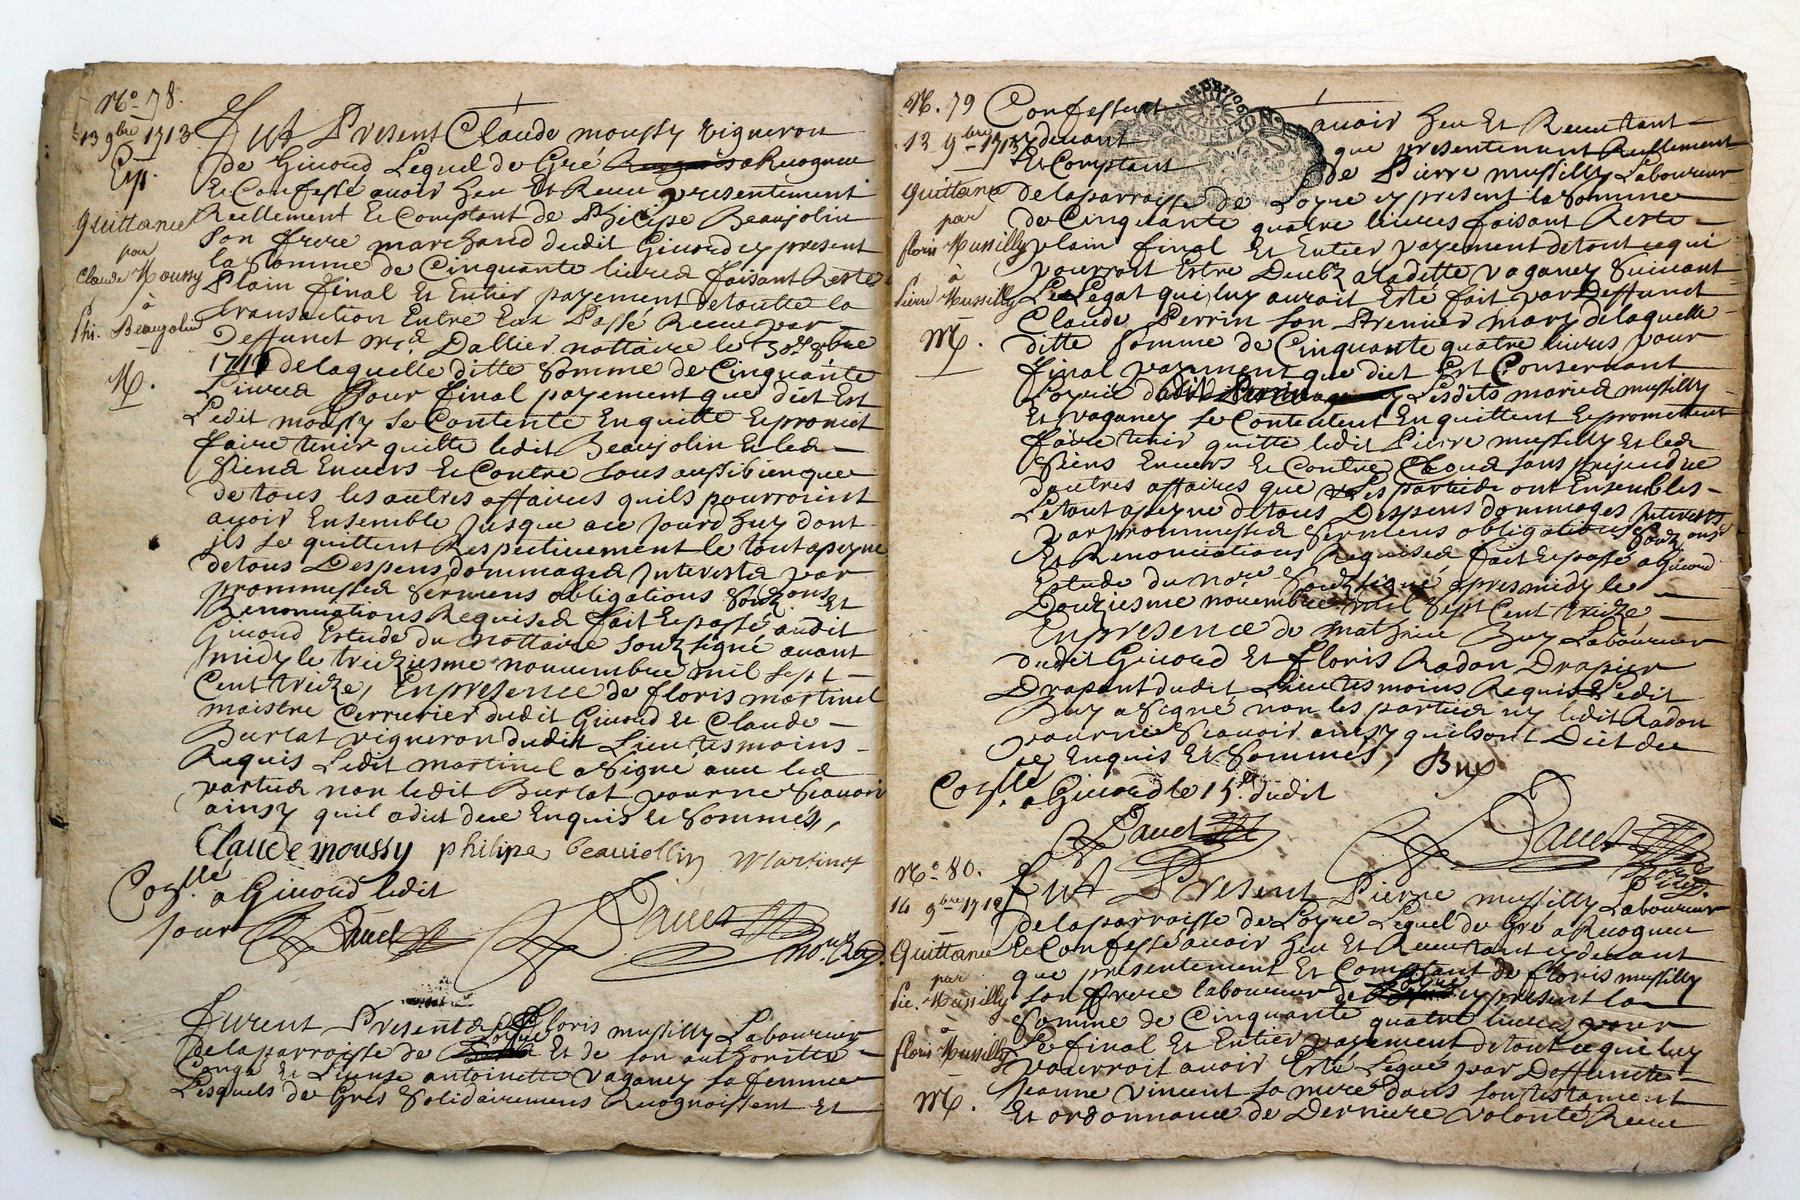 No. 78.
13 9bre 1713
Exp.
Quittance
par
Claude Moussy
à
Phi. Beaujolin
M.
Fut Present Claude moussy vigneron
de Giuord Lequel de Gré a Recogneu
Et Confessé auoir heu Et Receu presentement
Reellement Et Comptant de Philippe Beaujolin
son frere marchand dudit Giuord cy present
la somme de Cinquante liures faisant Reste
Plain final Et Entier payement de toutte la
transaction Entre Eux Passé Receu par
Deffunct Dallier nottaire le
de laquelle ditte somme de Cinquante
Liures pour final payement que dict Est
Ledit moussy se Contente En quitte Et promet
faire tenir quitte ledit Beaujolin Et les
siens Enuers Et Contre tous aussi bien que
de tous les autres affaires quils pourroient
auoir Ensemble Jusque a ce Jourdhuy dont
jls se quittent Respectiuement le tout a peyne
de tous Despens dommages Interests par
prommesses sermens obligations
Renonciations Requises fait Et passé audit
Giuord Estude du nottaire soubsigné auant
midy le treiziesme nouuembre mil sept
Cent treize, En presence de floris martinel
maistre Cerrurier dudit Giuord Et Claude
Burlat vigneron dudit Lieu tesmoins
Requis Ledit martinel a signé auec les
parties non ledit Burlat pour ne scauoir
ainsy quil a dict de ce Enquis Et sommés,
Claude moussy philipe beauiollin Martinel
Conlle a Giuord ledit
jour Dauet Dauet
Furent Presents floris mussilly Laboureur
de la parroisse de Loyre Et de son authoritté
Conge Et License antoinette vaganey sa femme
Lesquels de Gres solidairement Recognoissent Et
N. 79
13 9bre 1713
Quittance
par
floris Mussilly
à
Pierre Mussilly
M.
Confessent auoir heu Et Receu tant
cy deuant que presentement Reellement
Et Comptant de Pierre mussilly Laboureur
de la parroisse de Loyre cy present la somme
de Cinquante quatre liures faisant Reste
plain final Et Entier payement de tout ce qui
pourroit Estre Deubz a la ditte vaganey suiuant
Le Legat qui luy auroit Esté fait par Deffunct
Claude Perrin son Premier mary de laquelle
ditte somme de Cinquante quatre liures pour
final payement que dict Est
Lesdits mariés mussilly
Et vaganey se Contentent En quittent Et promettent
faire tenir quitte ledit Pierre mussilly Et les
siens Enuers Et Contre tous sans prejudice
dautres affaires que Les parties ont Ensembles
Le tout a peyne de tous Despens dommages Interests
par prommesses sermens obligations
Et Renonciations Requises fait Et passé a Giuord
Estude du nore soubsigné apres midy le
treiziesme nouembre mil sept Cent treize
En presence de mathieu Buy Laboureur
dudit Giuord Et floris Radon Drapier
Drapant dudit Lieu tesmoins Requis Ledit
Buy a signé non les parties ny ledit Radon
pour ne scauoir ainsy quils ont Dict de
ce Enquis Et sommés, Buy
Conlle a Giuord le 15e. dudit
Dauet Dauet
No. 80.
14 9bre
Quittance
par
Pie. Mussilly
à
floris Mussilly
M.
Fut Present Pierre mussilly Laboureur
de la parroisse de Loyre Lequel de Gré a Recogneu
Et Confessé auoir heu Et Receu tant cy deuant
que presentement Et Comptant de floris mussilly
son frere laboureur de cy present la
somme de Cinquante quatre liures pour
Le final Et Entier payement de tout ce qui luy
pourroit auoir Esté Legué par Deffuncte
Jeanne Vincent sa mere dans son testament
Et ordonnance de Derniere volonté Receu